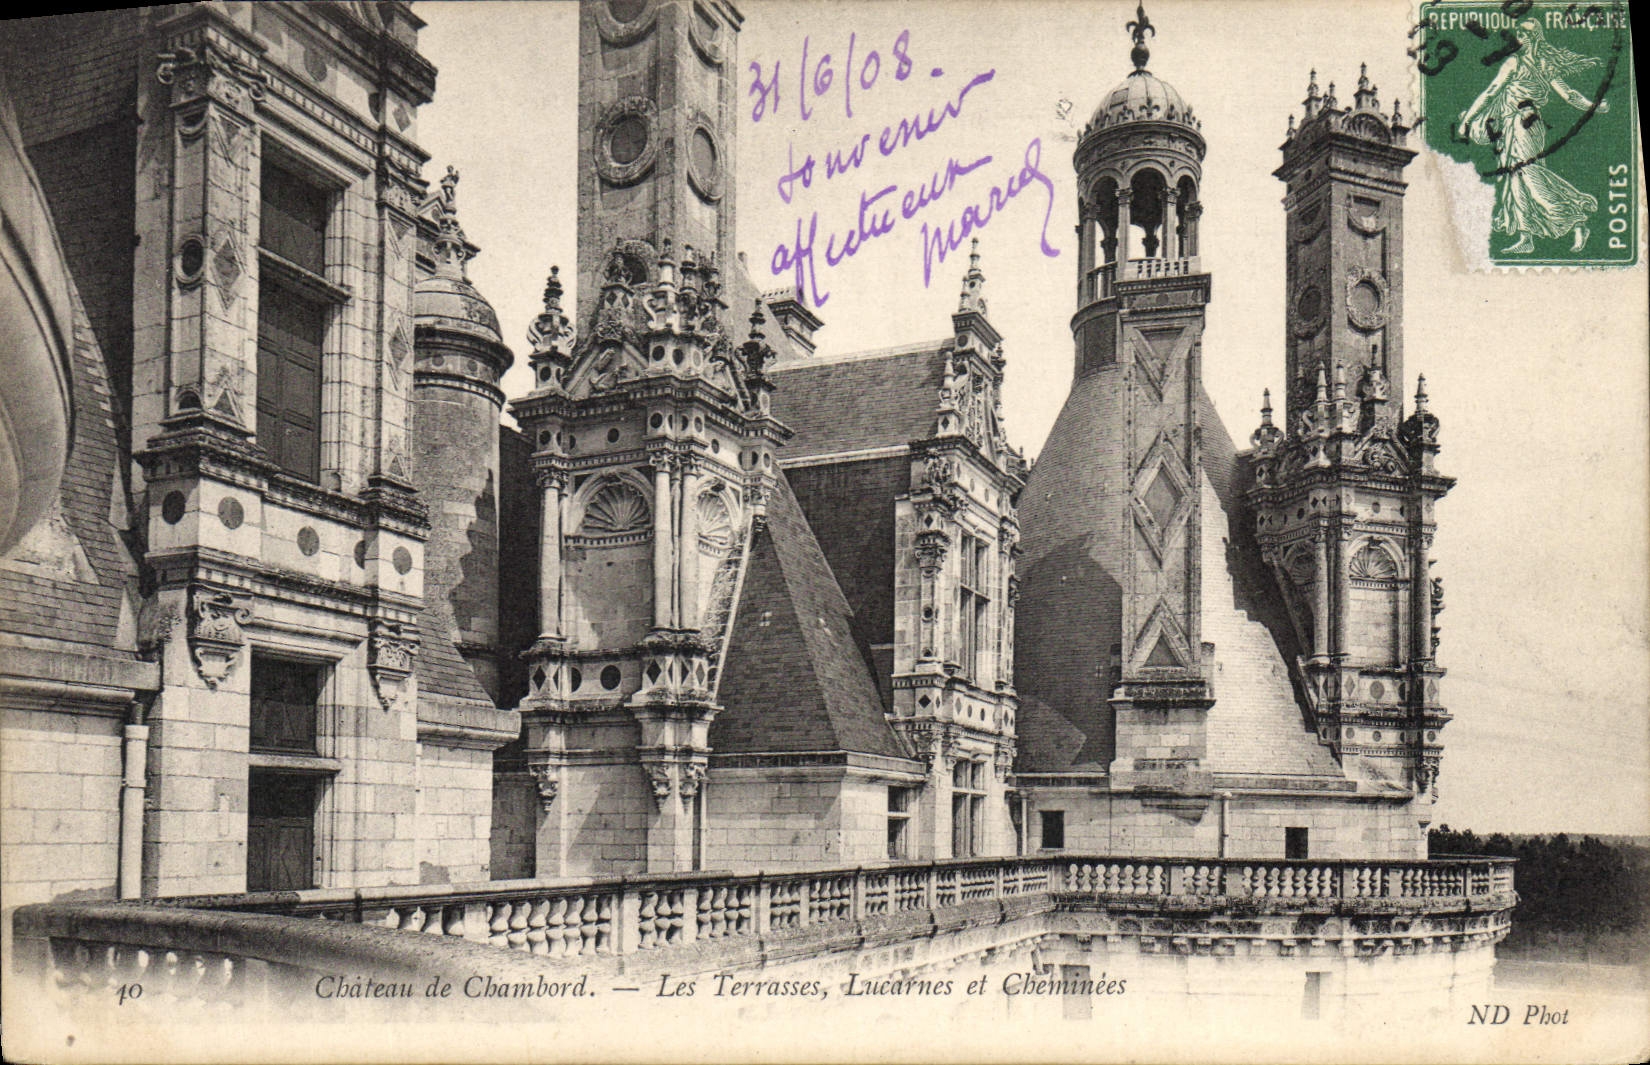 31/6/08.
souvenir
affectueux
Marcel
REPUBLIQUE FRANÇAISE
POSTES
40 Château de Chambord. — Les Terrasses, Lucarnes et Cheminées
ND Phot